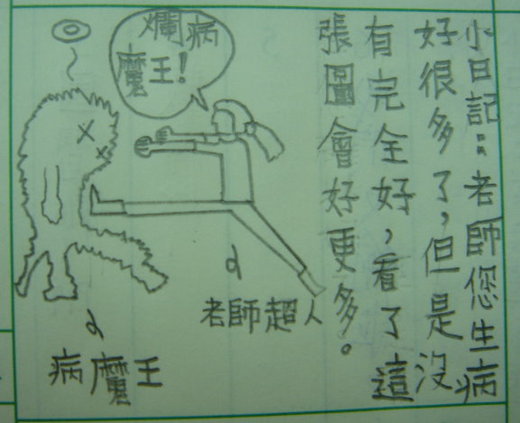 小日記：老師您生病
好很多了，但是沒
有完全好，看了這
張圖會好更多。
爛病
魔王！
老師超人
病魔王